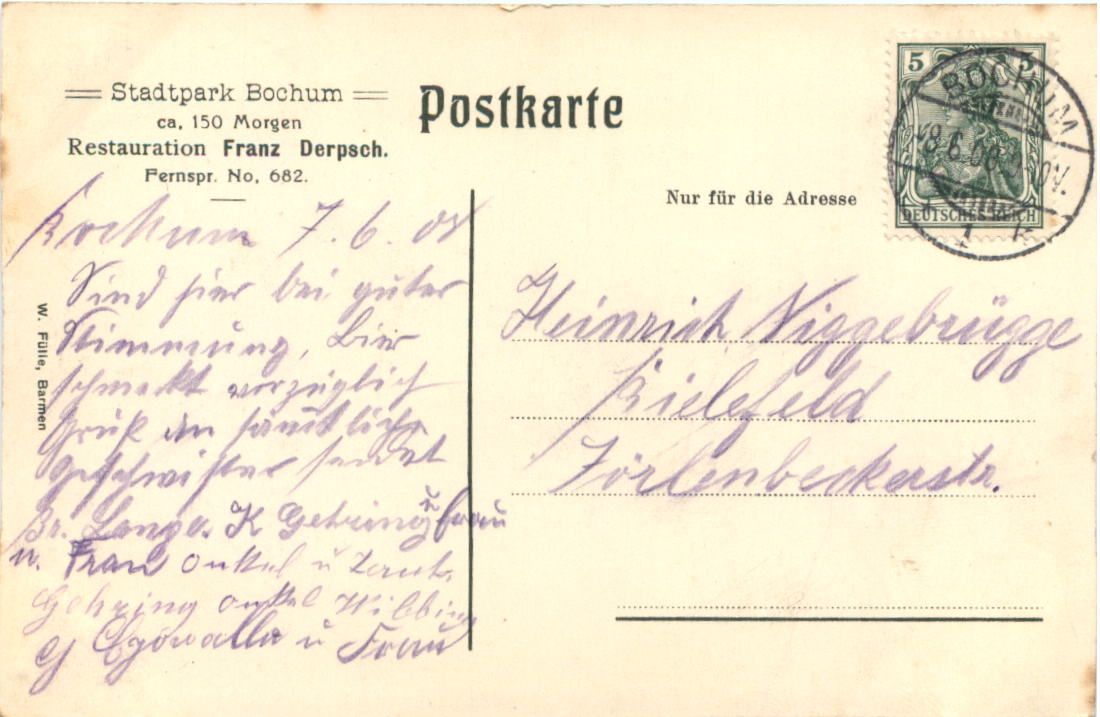 Stadtpark Bochum
ca. 150 Morgen
Restauration Franz Derpsch.
Fernspr. No. 682.
Postkarte
Nur für die Adresse
5 5
DEUTSCHES REICH
BOCHUM
W. Fülle, Barmen
Bochum 7.6.08
Sind hier bei guter
Stimmung, Bier
schmekt vorzüglich
Gruß an sämtliche
Geschwister sendet
Br. Lange. K Gehring u Frau
u. Frau Onkel u Tante
Gehring Onkel
u Frau
Heinrich Niggebrügge
Bielefeld